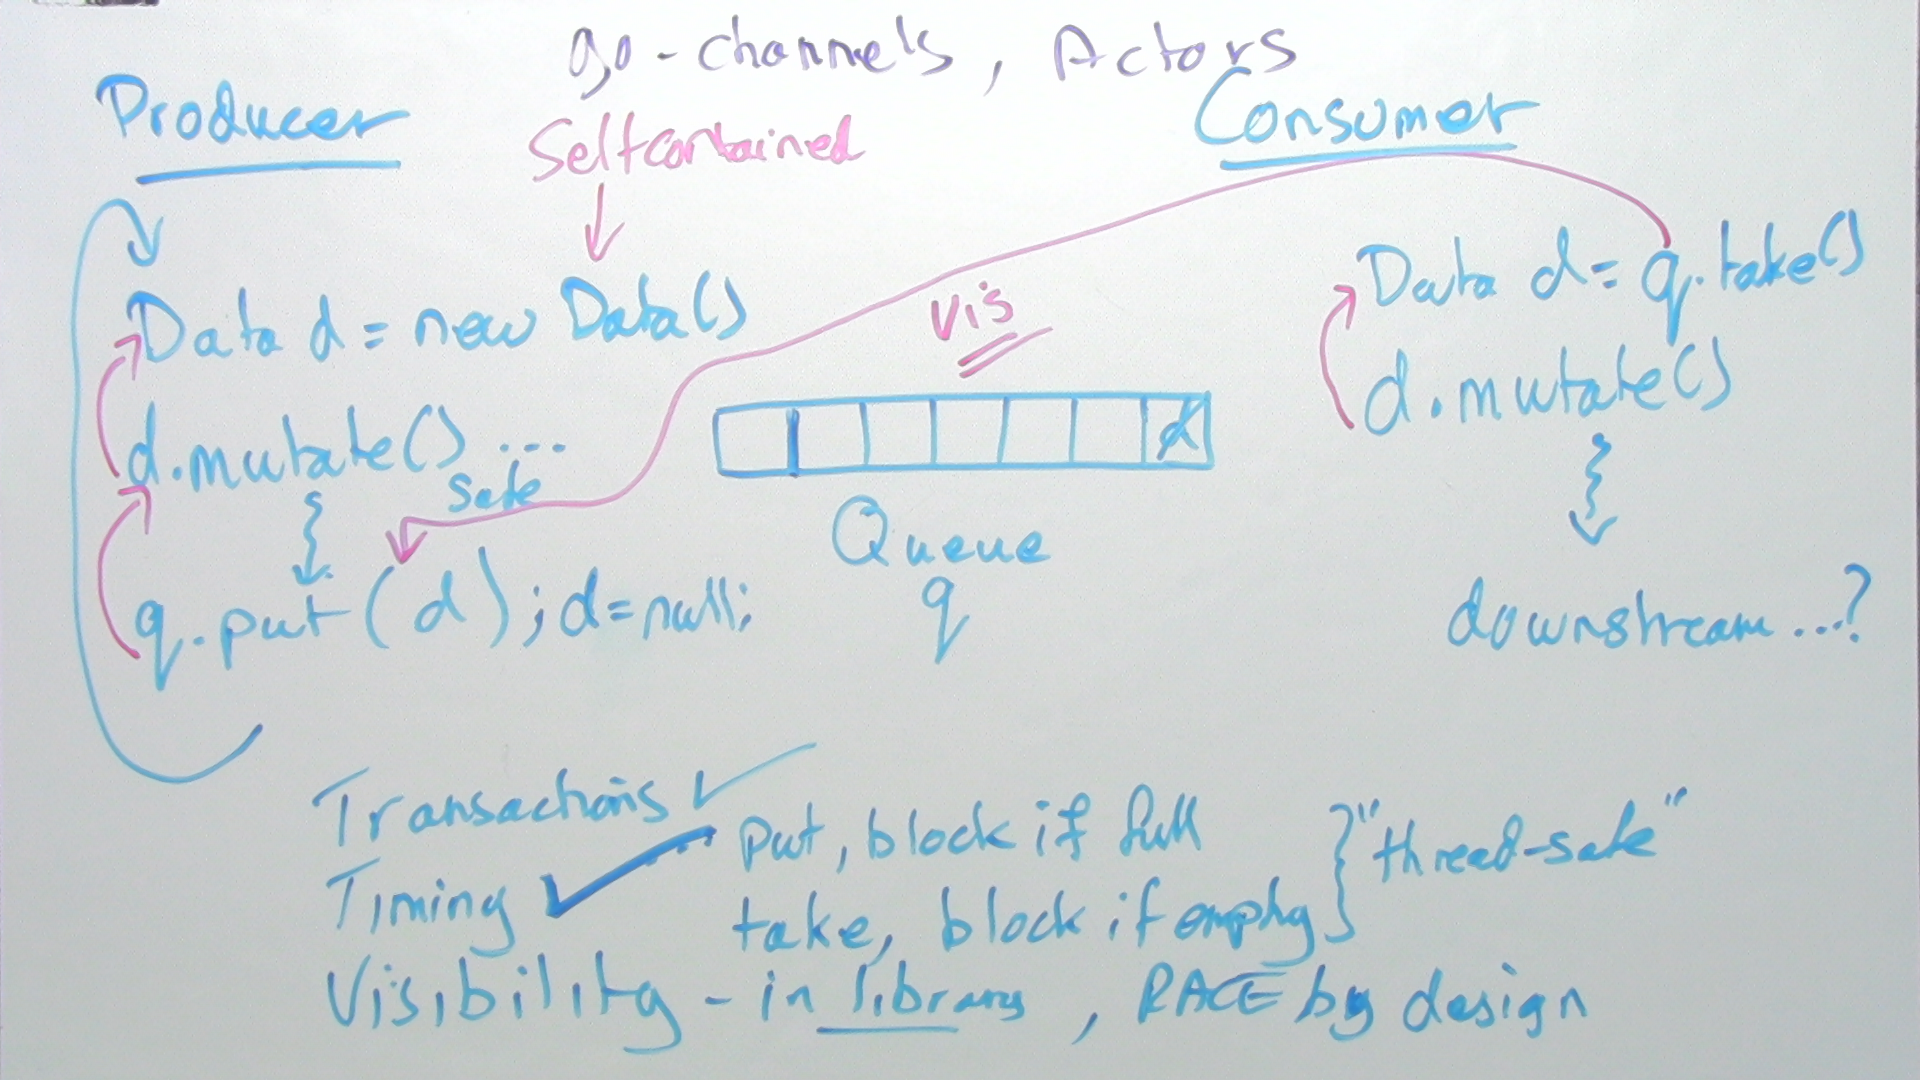 go-channels, Actors
Producer
Selfcontained
Consumer
Data d = new Data()
d.mutate() ...
safe
q.put(d); d=null;
Vis
d
Queue
q
Data d = q.take()
d.mutate()
downstream...?
Transactions ✓
Timing ✓ put, block if full
take, block if empty } "thread-safe"
Visibility - in library, RACE by design